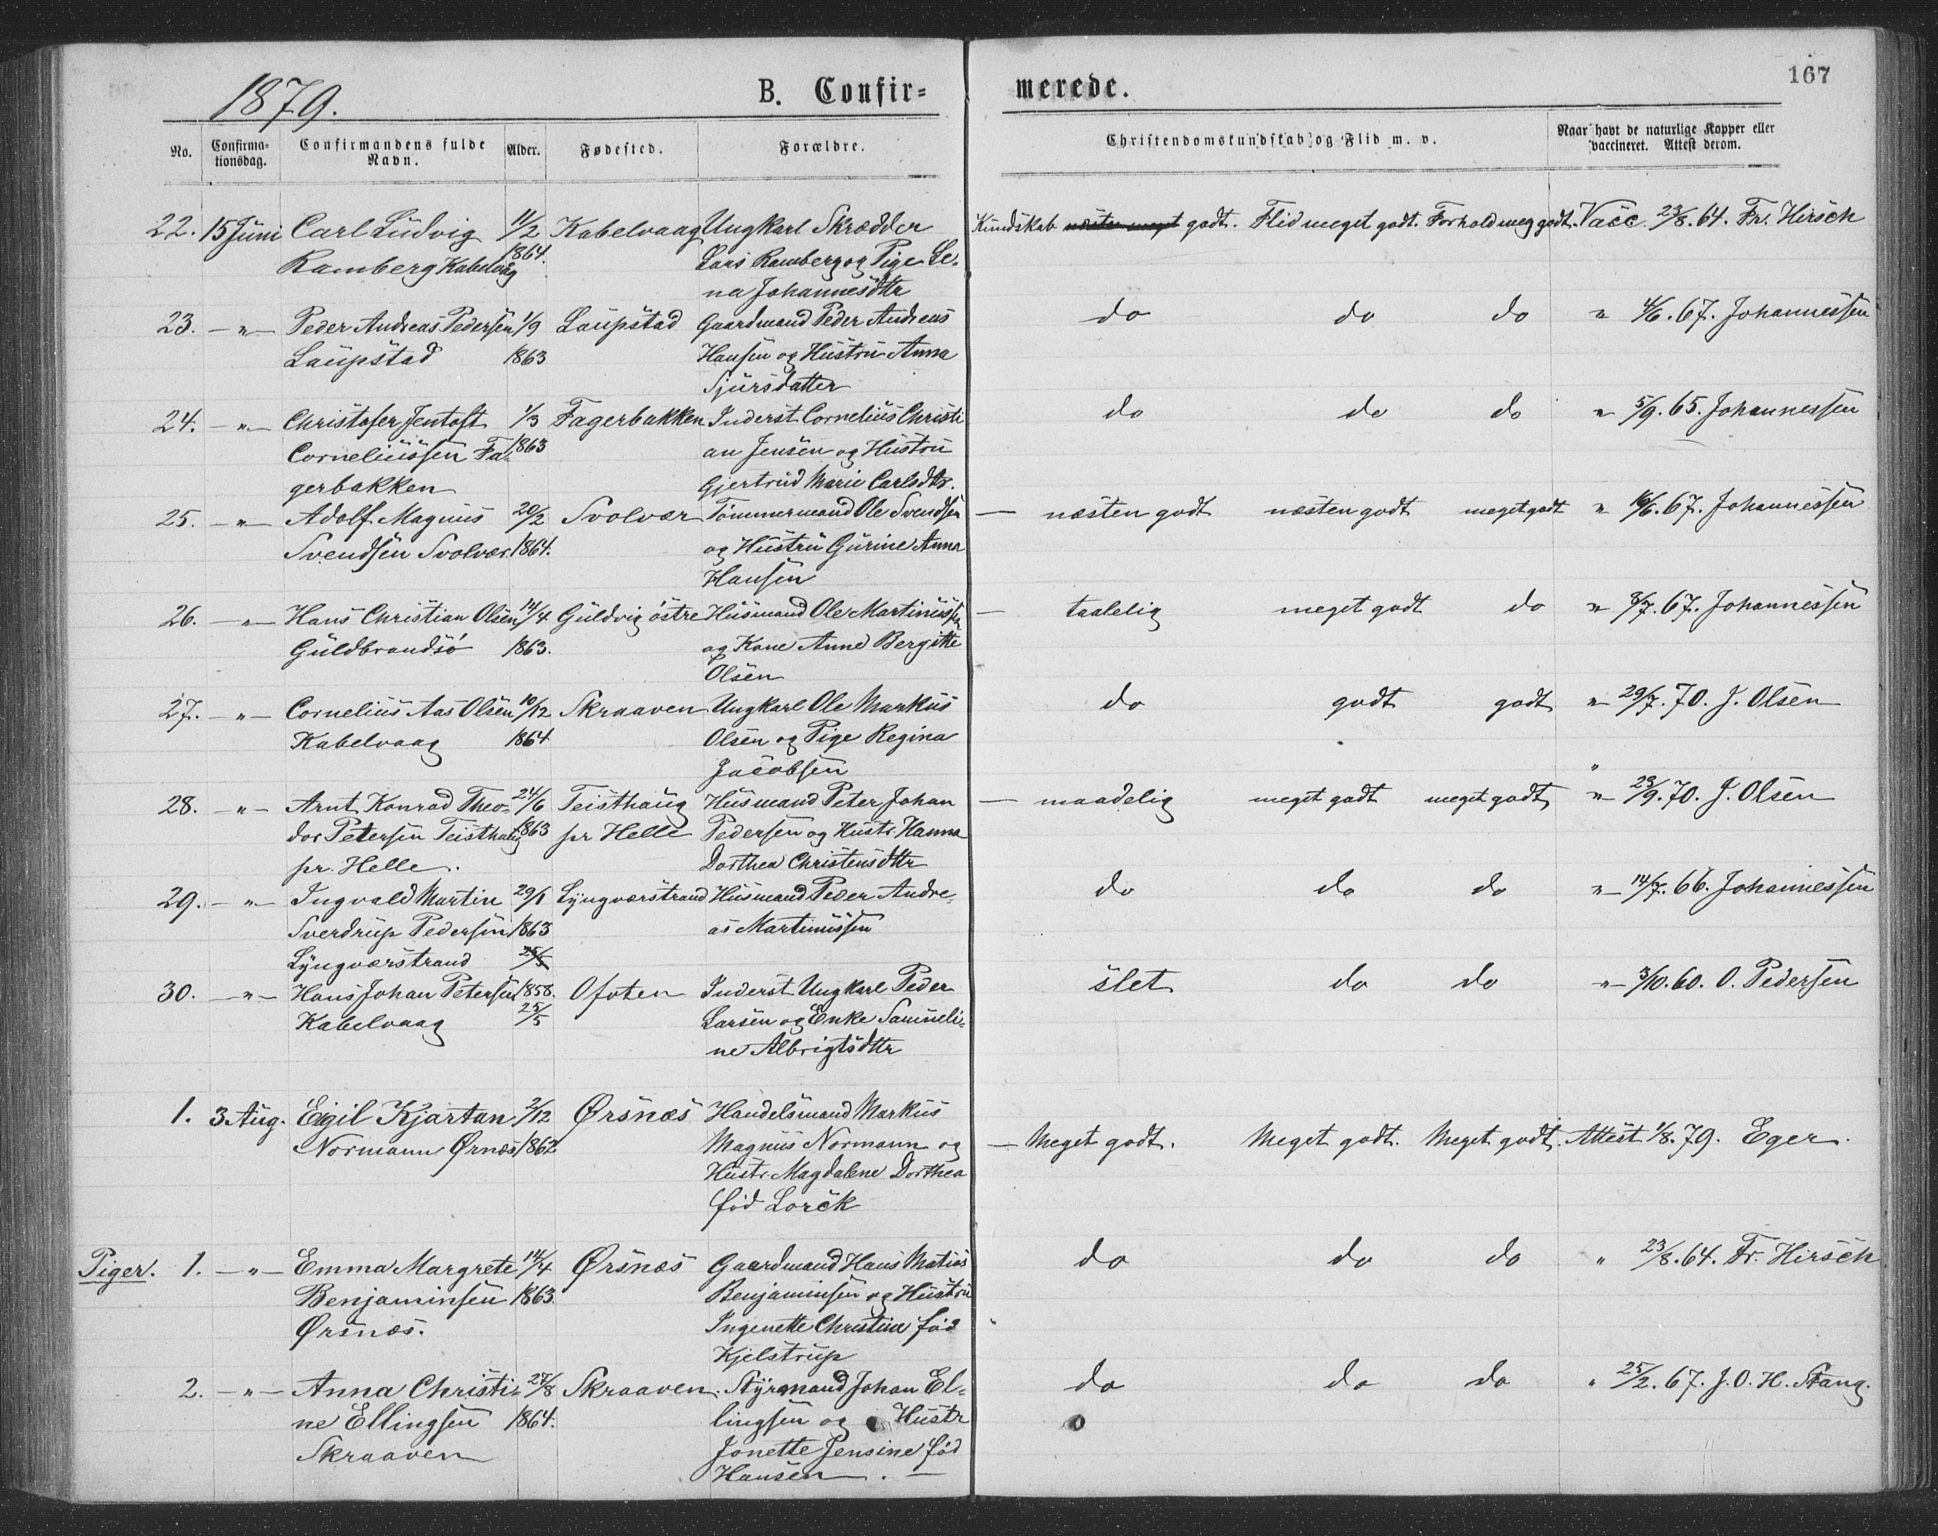 167
1879. B. Confirmerede.
No. Confirmationsdag. Confirmandens fulde Navn. Alder. Fødested. Forældre. Christendomskundskab og Flid m. v. Naar havt de naturlige Kopper eller vaccineret. Attest derom.
22. 15 Juni Carl Ludvig 11/2 Kabelvaag Ungkarl Skrædder Kundskab næsten meget godt. Flid meget godt. Forhold meg godt. Vacc. 23/8. 64. Fr. Hirsch
Ramberg Kabelvåg 1864. Lars Ramberg og Pige Le-
na Johannesdtr
23. -"- Peder Andreas Pedersen 1/9 Laupstad Gaardmand Peder Andreas do do do " 4/6. 67. Johannessen
Laupstad 1863 Hansen og Hustru Anna
Sjursdatter
24. -"- Christofer Jentoft 1/3 Fagerbakken Inderst Cornelius Christi do do do " 5/9. 65. Johannessen
Corneliussen Fa- 1863 an Jensen og Hustru
gerbakken Gjertrud Marie Carlsdtr.
25. -"- Adolf Magnus 20/2 Svolvær Tømmermand Ole Svendsen - næsten godt næsten godt meget godt " 16/6. 67. Johannessen
Svendsen Svolvær 1864. og Hustru Gurine Anna
Hansen
26. -"- Hans Christian Olsen 14/4 Guldvig östre Husmand Ole Martinussen - taalelig meget godt do " 8/7. 67. Johannessen
Guldbrandsö 1863. og Kone Anne Bergitte
Olsen
27. -"- Cornelius Aas Olsen 10/12 Skraaven Ungkarl Ole Markus do godt godt " 29/7. 70. J. Olsen
Kabelvaag 1864 Olsen og Pige Regina
Jacobsen
28. -"- Arnt Konrad Theo- 24/6 Teisthaug Husmand Peter Johan - maadelig meget godt meget godt " 23/9. 70. J. Olsen
dor Petersen Teisthaug 1863 pr Helle Pedersen og Hustr. Hanna
pr. Helle. Dorthea Christensdtr
29. -"- Ingvald Martin 29/1 Lyngværstrand Husmand Peder Andre- do do do " 14/7. 66. Johannessen
Sverdrup Pedersen 1863 as Martinussen
Lyngværstrand 25/5
30. -"- Hans Johan Petersen 1858. Ofoten Inderst Ungkarl Peder slet do do " 3/10. 60. O. Pedersen
Kabelvaag 25/5 Larsen og Enke Samueli-
ne Albrigtsdtr
1. 3 Aug. Egil Kjartan 2/12 Ørsnæs Handelsmand Markus
Normann Ørnæs 1862 Magnus Normann og - Meget godt. Meget godt. Meget godt. Attest 1/8. 79. Eger.
Hustr. Magdalene Dorthea
fød Lorck
Piger. 1. -"- Emma Margrete 14/4 Ørsnæs Gaardmand Hans Matias do do do " 23/8. 64. Fr. Hirsch
Benjaminsen 1863. Benjaminsen og Hustru
Ørsnæs. Ingenette Christine fød
Kjelstrup
2. -"- Anna Christi- 27/8 Skraaven. Styrmand Johan El- do do do " 25/2. 67. J. O. H. Stang.
ne Ellingsen 1864. lingsen og Hustr
Skraaven Jonette Jensine fød
Hansen.